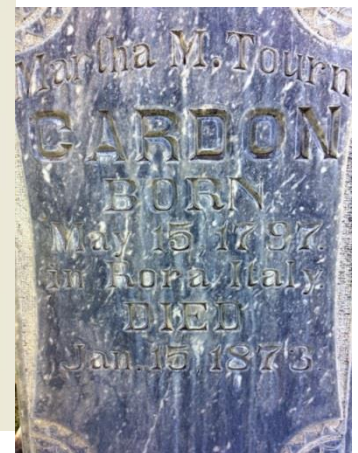 Martha M. Tourn
CARDON
BORN
May 15, 1797.
in Rora, Italy
DIED
Jan. 15, 1873